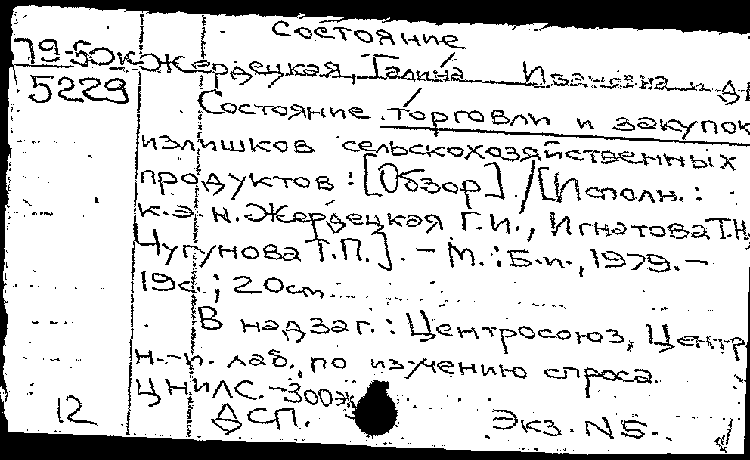 Состояние
79-50к Жердецкая, Галина Ивановна и др
5229 Состояние торговли и закупок
излишков сельскохозяйственных
продуктов : [Обзор] / [Исполн. :
к.э.н. Жердецкая Г.И., Игнатова Т.Н.
Чугунова Т.П.]. – М. : Б.и., 1979. –
19с. ; 20см
В надзаг. : Центросоюз, Центр
н.-и. лаб. по изучению спроса
ЦНИЛС. – 300э
12 ДСП. Экз. №Б.